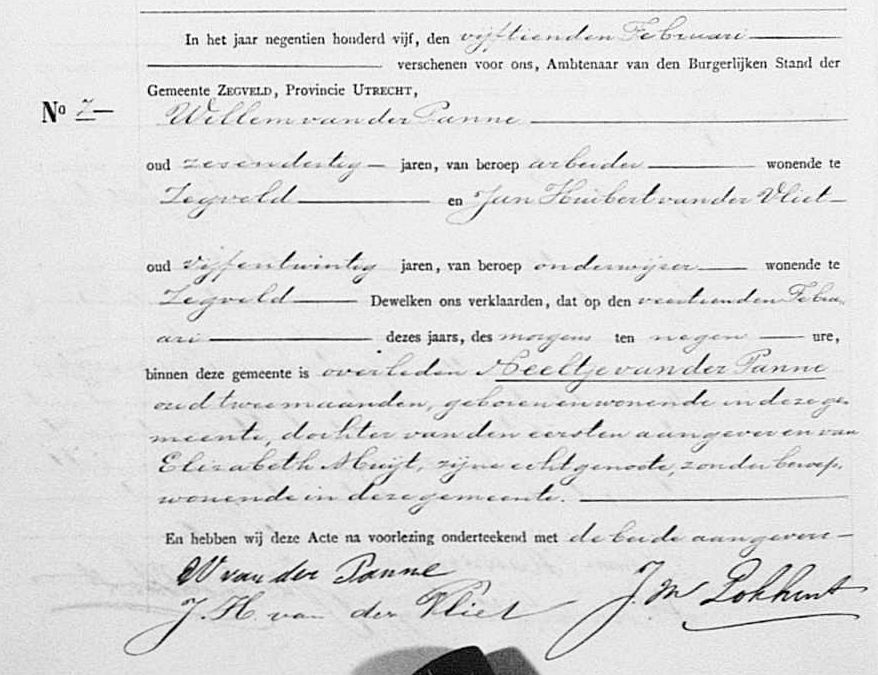 In het jaar negentien honderd vijf, den vijftienden Februari
verschenen voor ons, Ambtenaar van den Burgerlijken Stand der
Gemeente ZEGVELD, Provincie UTRECHT,
No 7
Willem van der Panne
oud zesendertig jaren, van beroep arbeider wonende te
Zegveld en Jan Huibert van der Vliet
oud vijfentwintig jaren, van beroep onderwijzer wonende te
Zegveld Dewelken ons verklaarden, dat op den veertienden Febru-
ari dezes jaars, des morgens ten negen ure,
binnen deze gemeente is overleden Neeltje van der Panne
oud twee maanden, geboren en wonende in deze ge-
meente, dochter van den eersten aangever en van
Elizabeth Muijt, zijne echtgenoote, zonder beroep,
wonende in deze gemeente.
En hebben wij deze Acte na voorlezing onderteekend met de beide aangevers
W van der Panne
J. H. van der Vliet J. M.